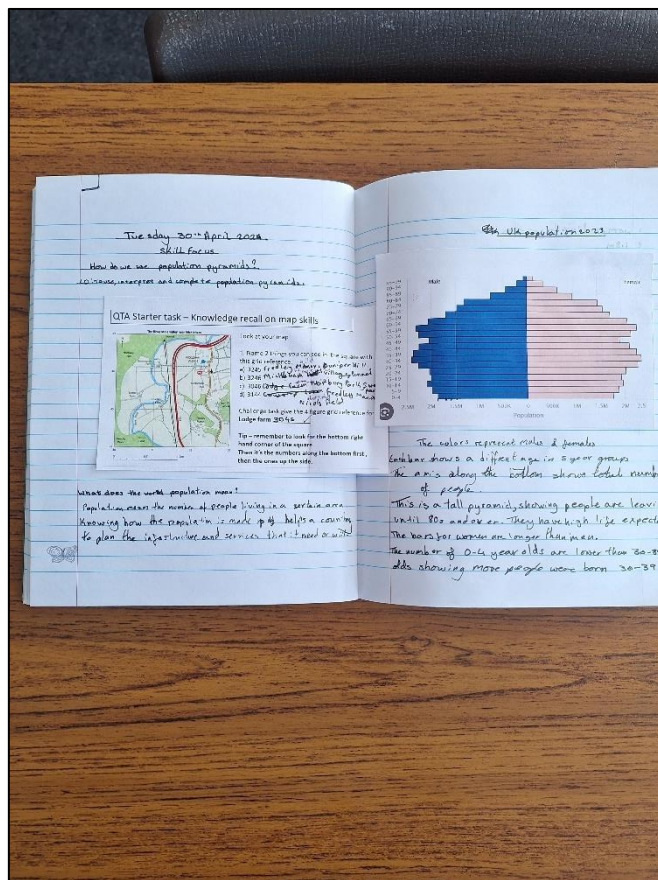 Tuesday 30th April 2024
Skill Focus
How do we use population pyramids?
LO: use, interpret and complete population pyramids.
QTA Starter task – Knowledge recall on map skills
Look at your map
1. Name 2 things you can see in the square with
this grid reference.
a) 3245 Fredley Manor Bunper Hill
b) 3246
c) 3046 Bury Park
d) 3144 Fredley
Nicols Field
Challenge task give the 4 figure grid reference for
Lodge farm 3045
Tip – remember to look for the bottom right
hand corner of the square
Then it's the numbers along the bottom first,
then the ones up the side.
What does the world population mean?
Population means the number of people living in a certain area
Knowing how the population is made up of helps a country
to plan the infrastructure and services that it need or wants
UK population 2023
Male
Female
2.5M 2M 1.5M 1M 500K 0 500K 1M 1.5M 2M 2.5
Population
The colors represent males & females
Each bar shows a different age in 5 year groups
The axis along the bottom shows total number
of people.
This is a tall pyramid, showing people are leavi
until 80s and over. They have high life expect
The bars for women are longer than men.
The number of 0-4 year olds are lower than 30-3
olds showing more people were born 30-39